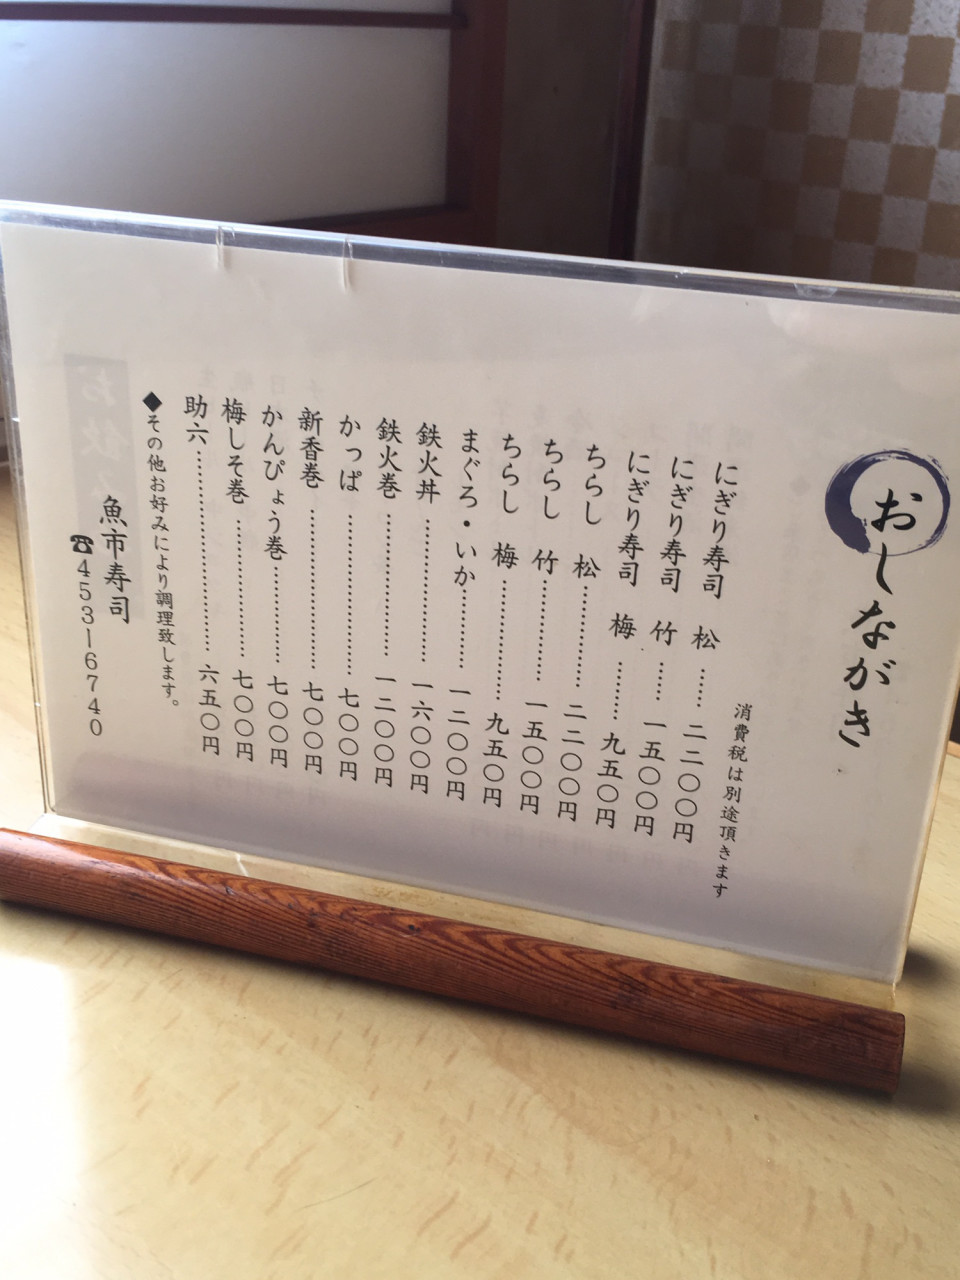 おしながき
消費税は別途頂きます
にぎり寿司 松……二二〇〇円
にぎり寿司 竹……一五〇〇円
にぎり寿司 梅……九五〇円
ちらし 松……二二〇〇円
ちらし 竹……一五〇〇円
ちらし 梅……九五〇円
まぐろ・いか……一二〇〇円
鉄火丼……一六〇〇円
鉄火巻……一二〇〇円
かっぱ……七〇〇円
新香巻……七〇〇円
かんぴょう巻……七〇〇円
梅しそ巻……七〇〇円
助六……六五〇円
◆その他お好みにより調理致します。
魚市寿司
☎453-6740